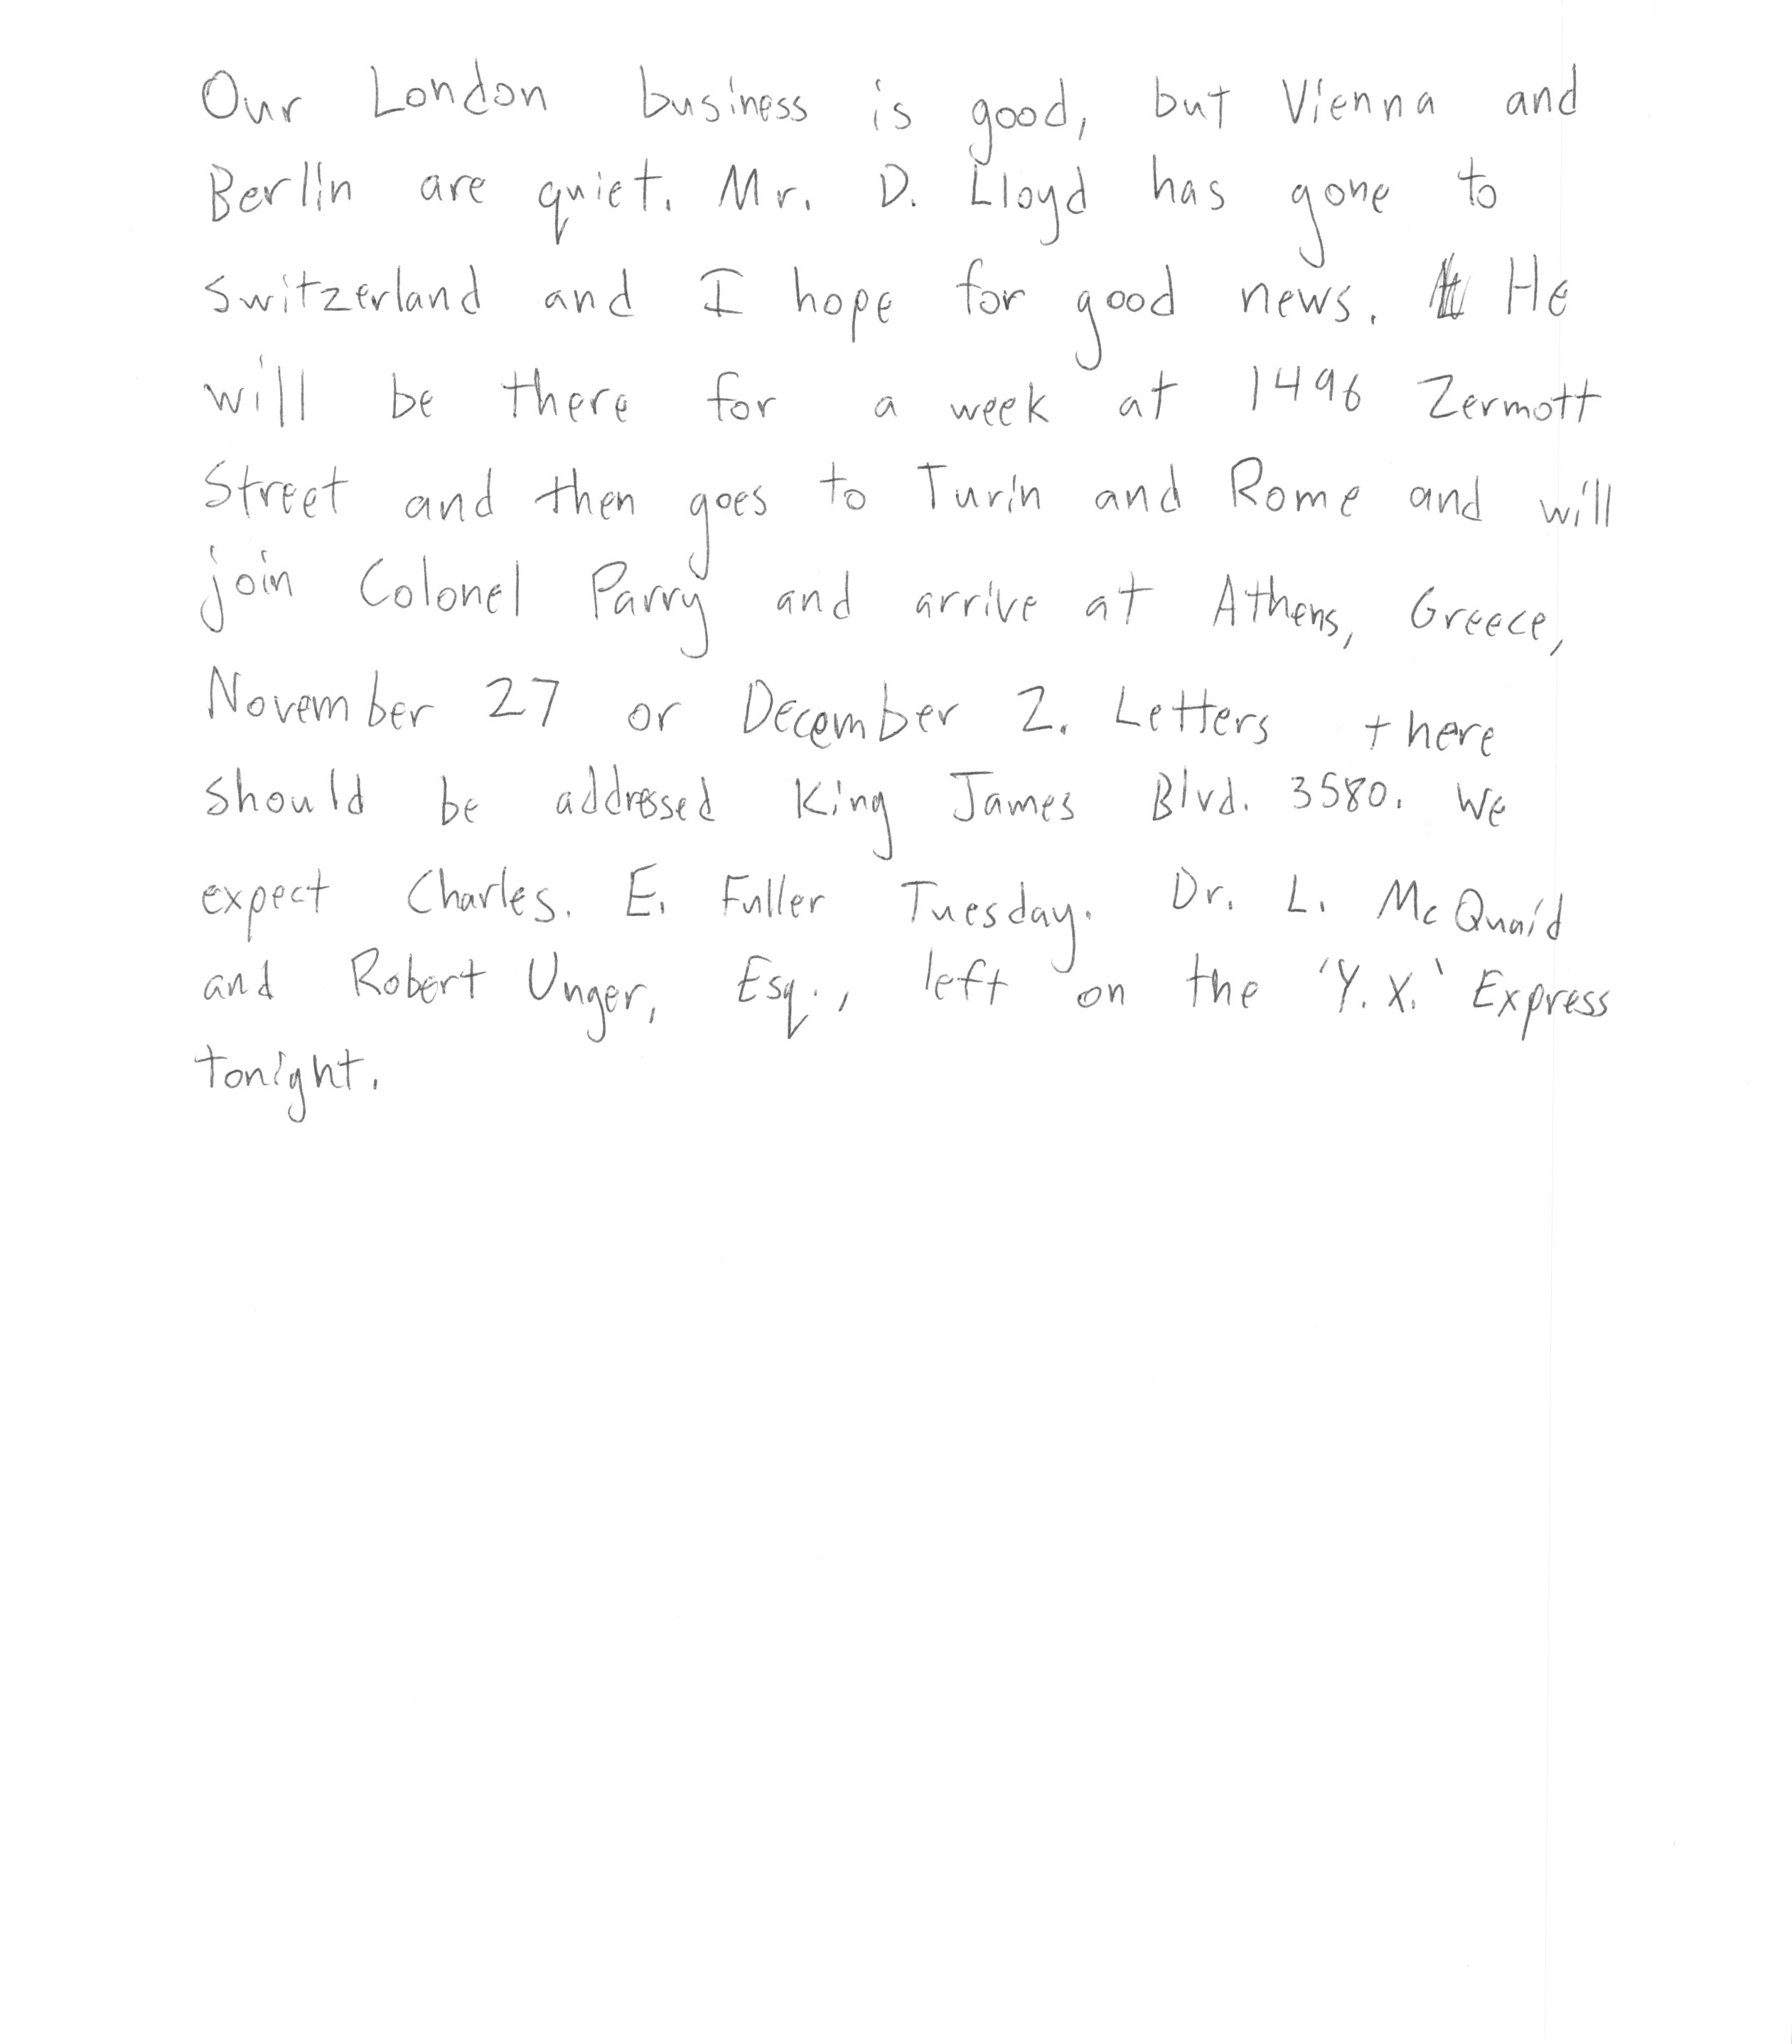 Our London business is good, but Vienna and
Berlin are quiet. Mr. D. Lloyd has gone to
Switzerland and I hope for good news. He
will be there for a week at 1496 Zermott
Street and then goes to Turin and Rome and will
join Colonel Parry and arrive at Athens, Greece,
November 27 or December 2. Letters there
should be addressed King James Blvd. 3580. We
expect Charles. E. Fuller Tuesday. Dr. L. McQuaid
and Robert Unger, Esq., left on the 'Y.X.' Express
tonight.